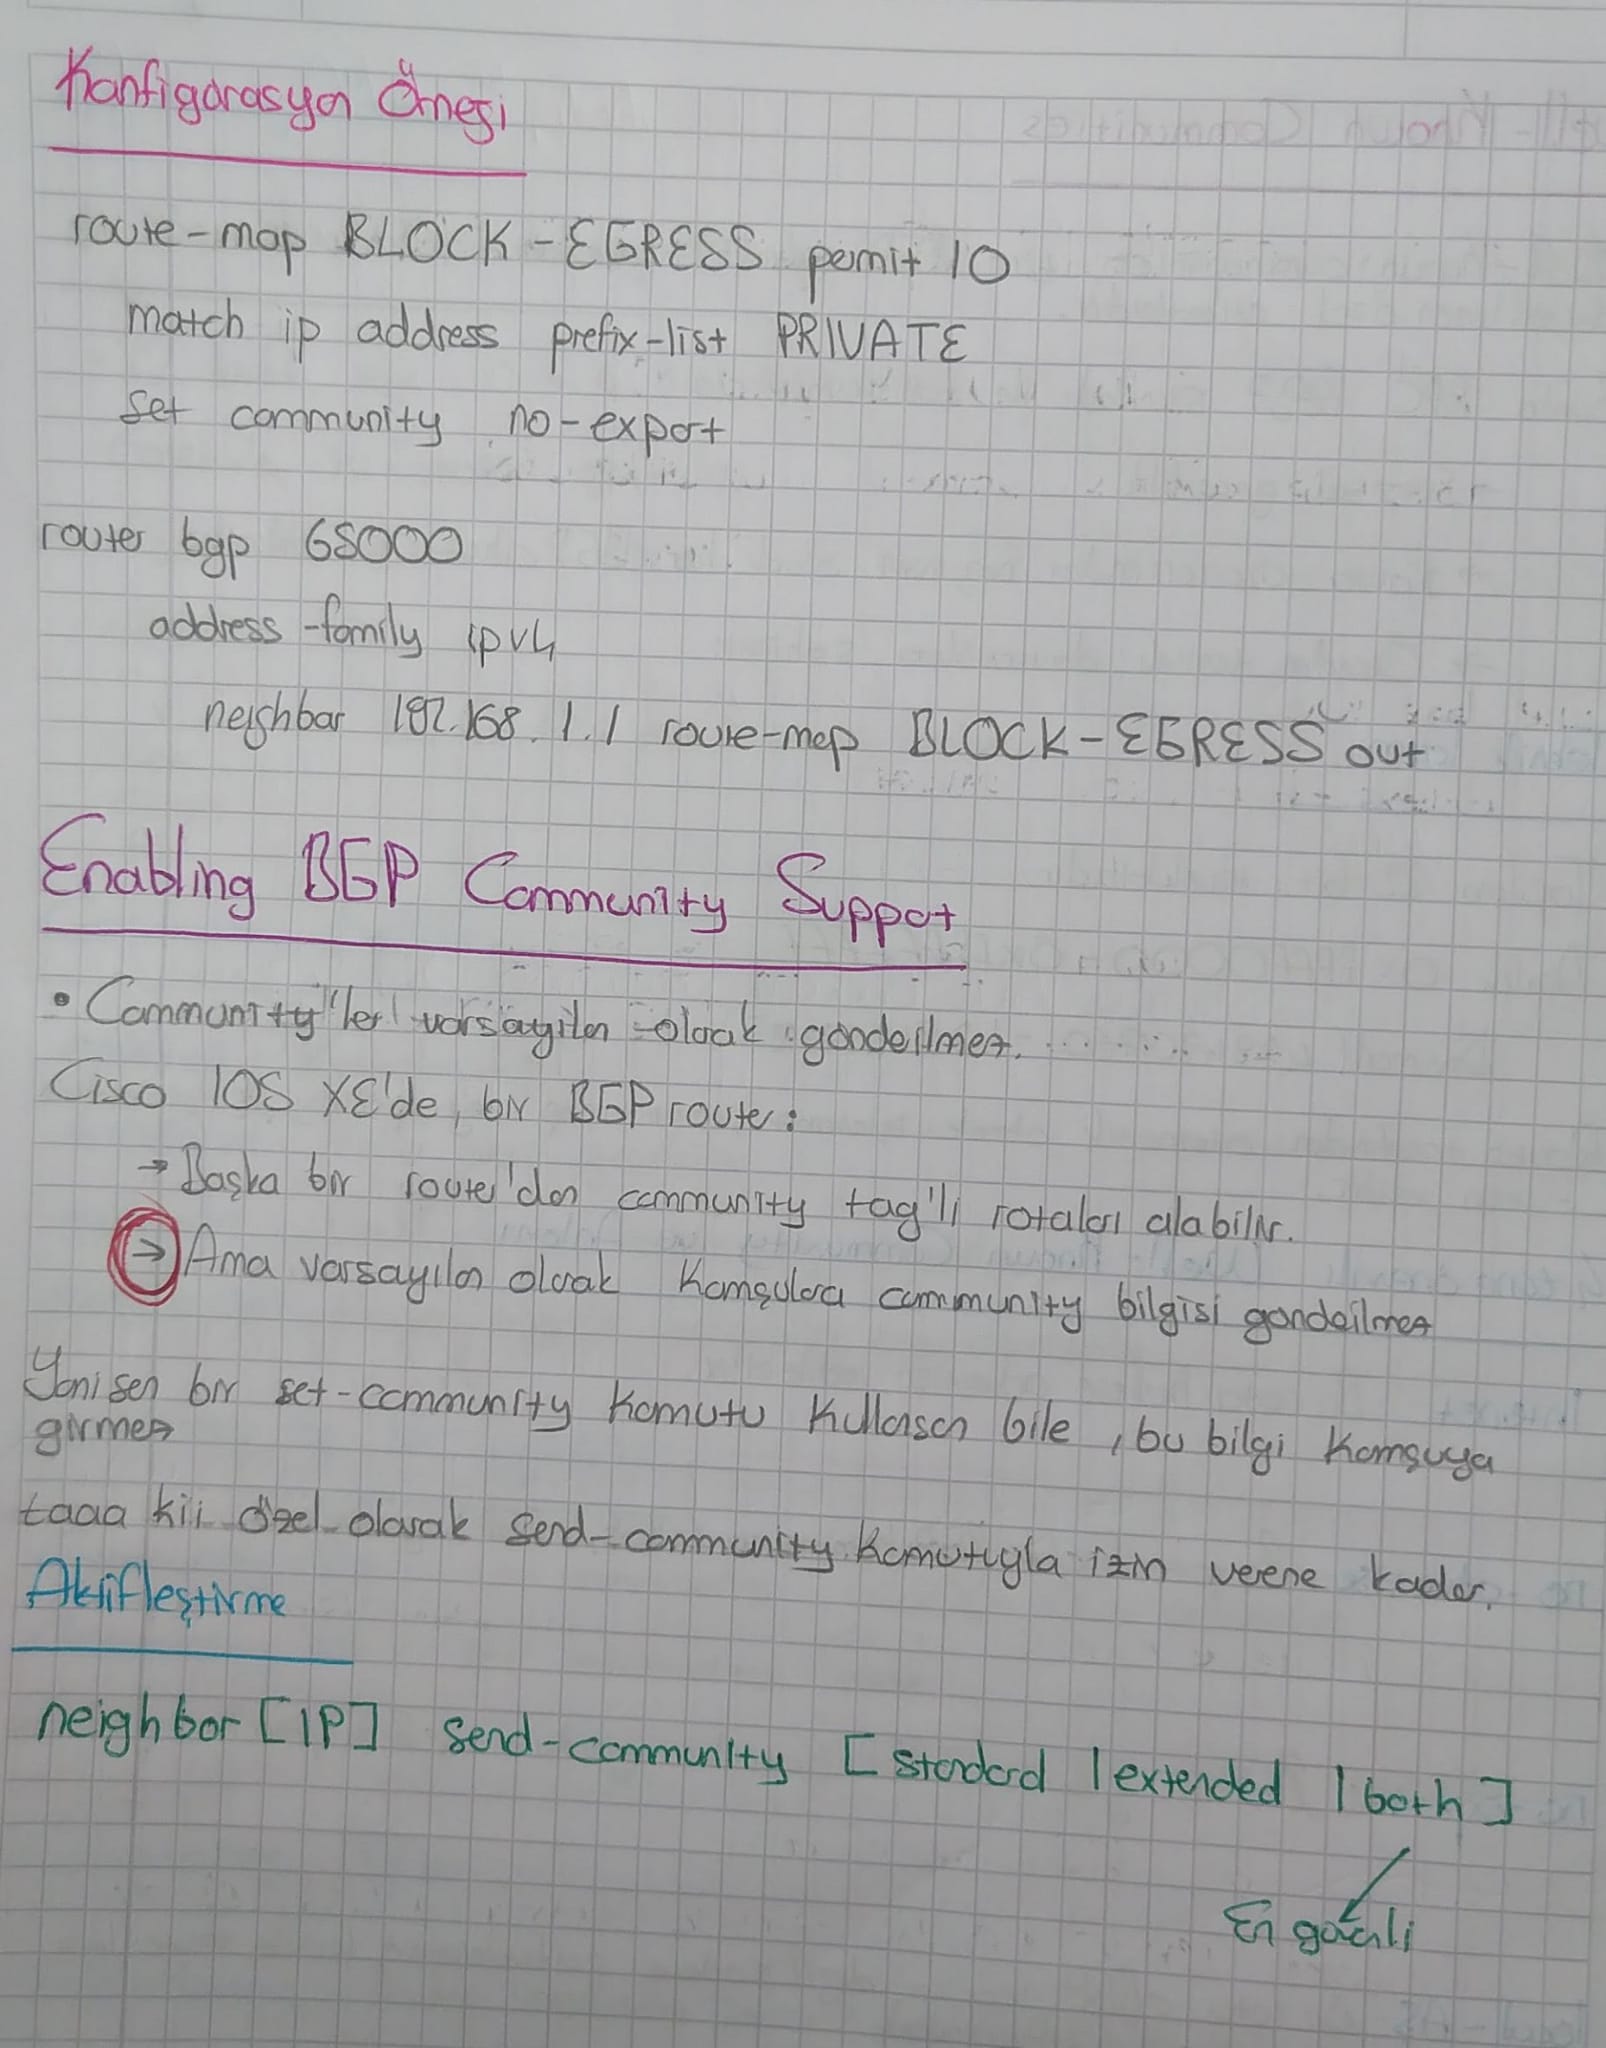 Konfigürasyon Örneği
route-map BLOCK-EGRESS permit 10
match ip address prefix-list PRIVATE
set community no-export
router bgp 65000
address-family ipv4
neighbor 192.168.1.1 route-map BLOCK-EGRESS out
Enabling BGP Community Support
• Community'ler varsayılan olarak gönderilmez.
Cisco IOS XE'de, bir BGP router:
→ Başka bir router'dan community tag'li rotaları alabilir.
→ Ama varsayılan olarak komşulara community bilgisi gönderilmez
Yani sen bir set-community komutu kullansan bile, bu bilgi komşuya
girmez
taaa kii özel olarak send-community komutuyla izin verene kadar.
Aktifleştirme
neighbor [IP] send-community [standard | extended | both]
En güçlü